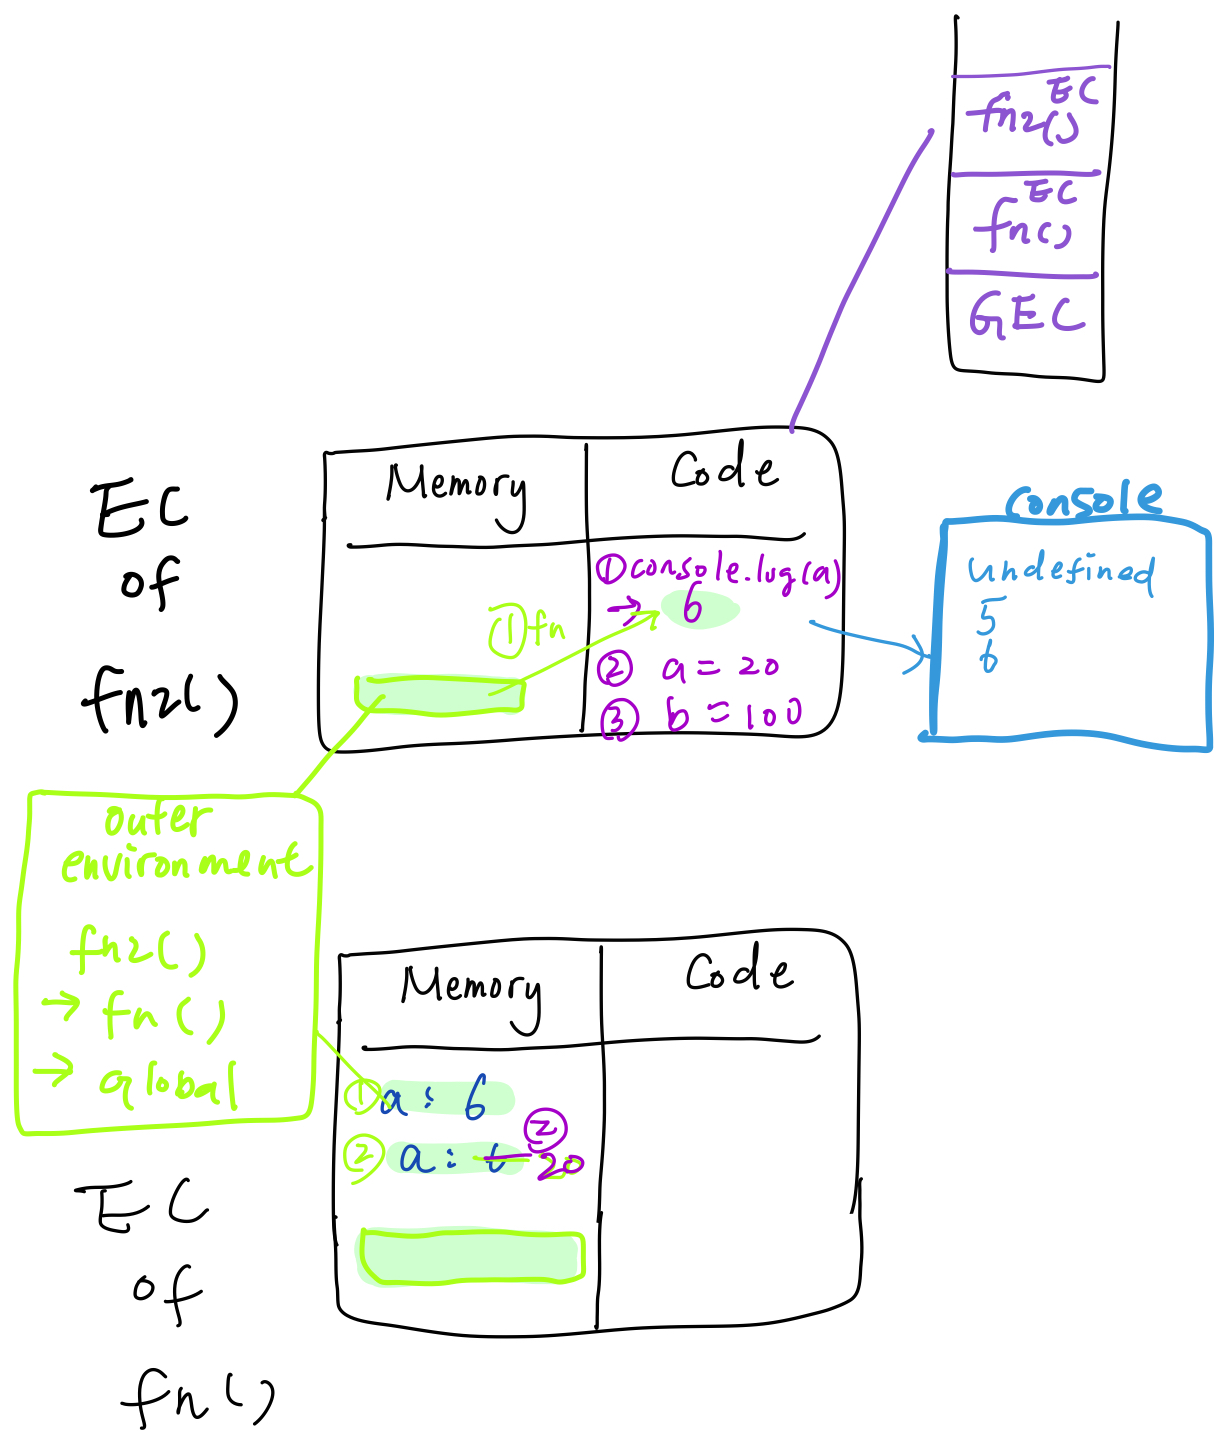 EC
fn2()
EC
fn()
GEC
EC
of
fn2()
Memory
Code
① console.log(a)
→ 6
② a = 20
③ b = 100
① fn
console
undefined
5
6
outer
environment
fn2()
→ fn()
→ global
EC
of
fn()
Memory
Code
① a : 6
②
② a : 6 20